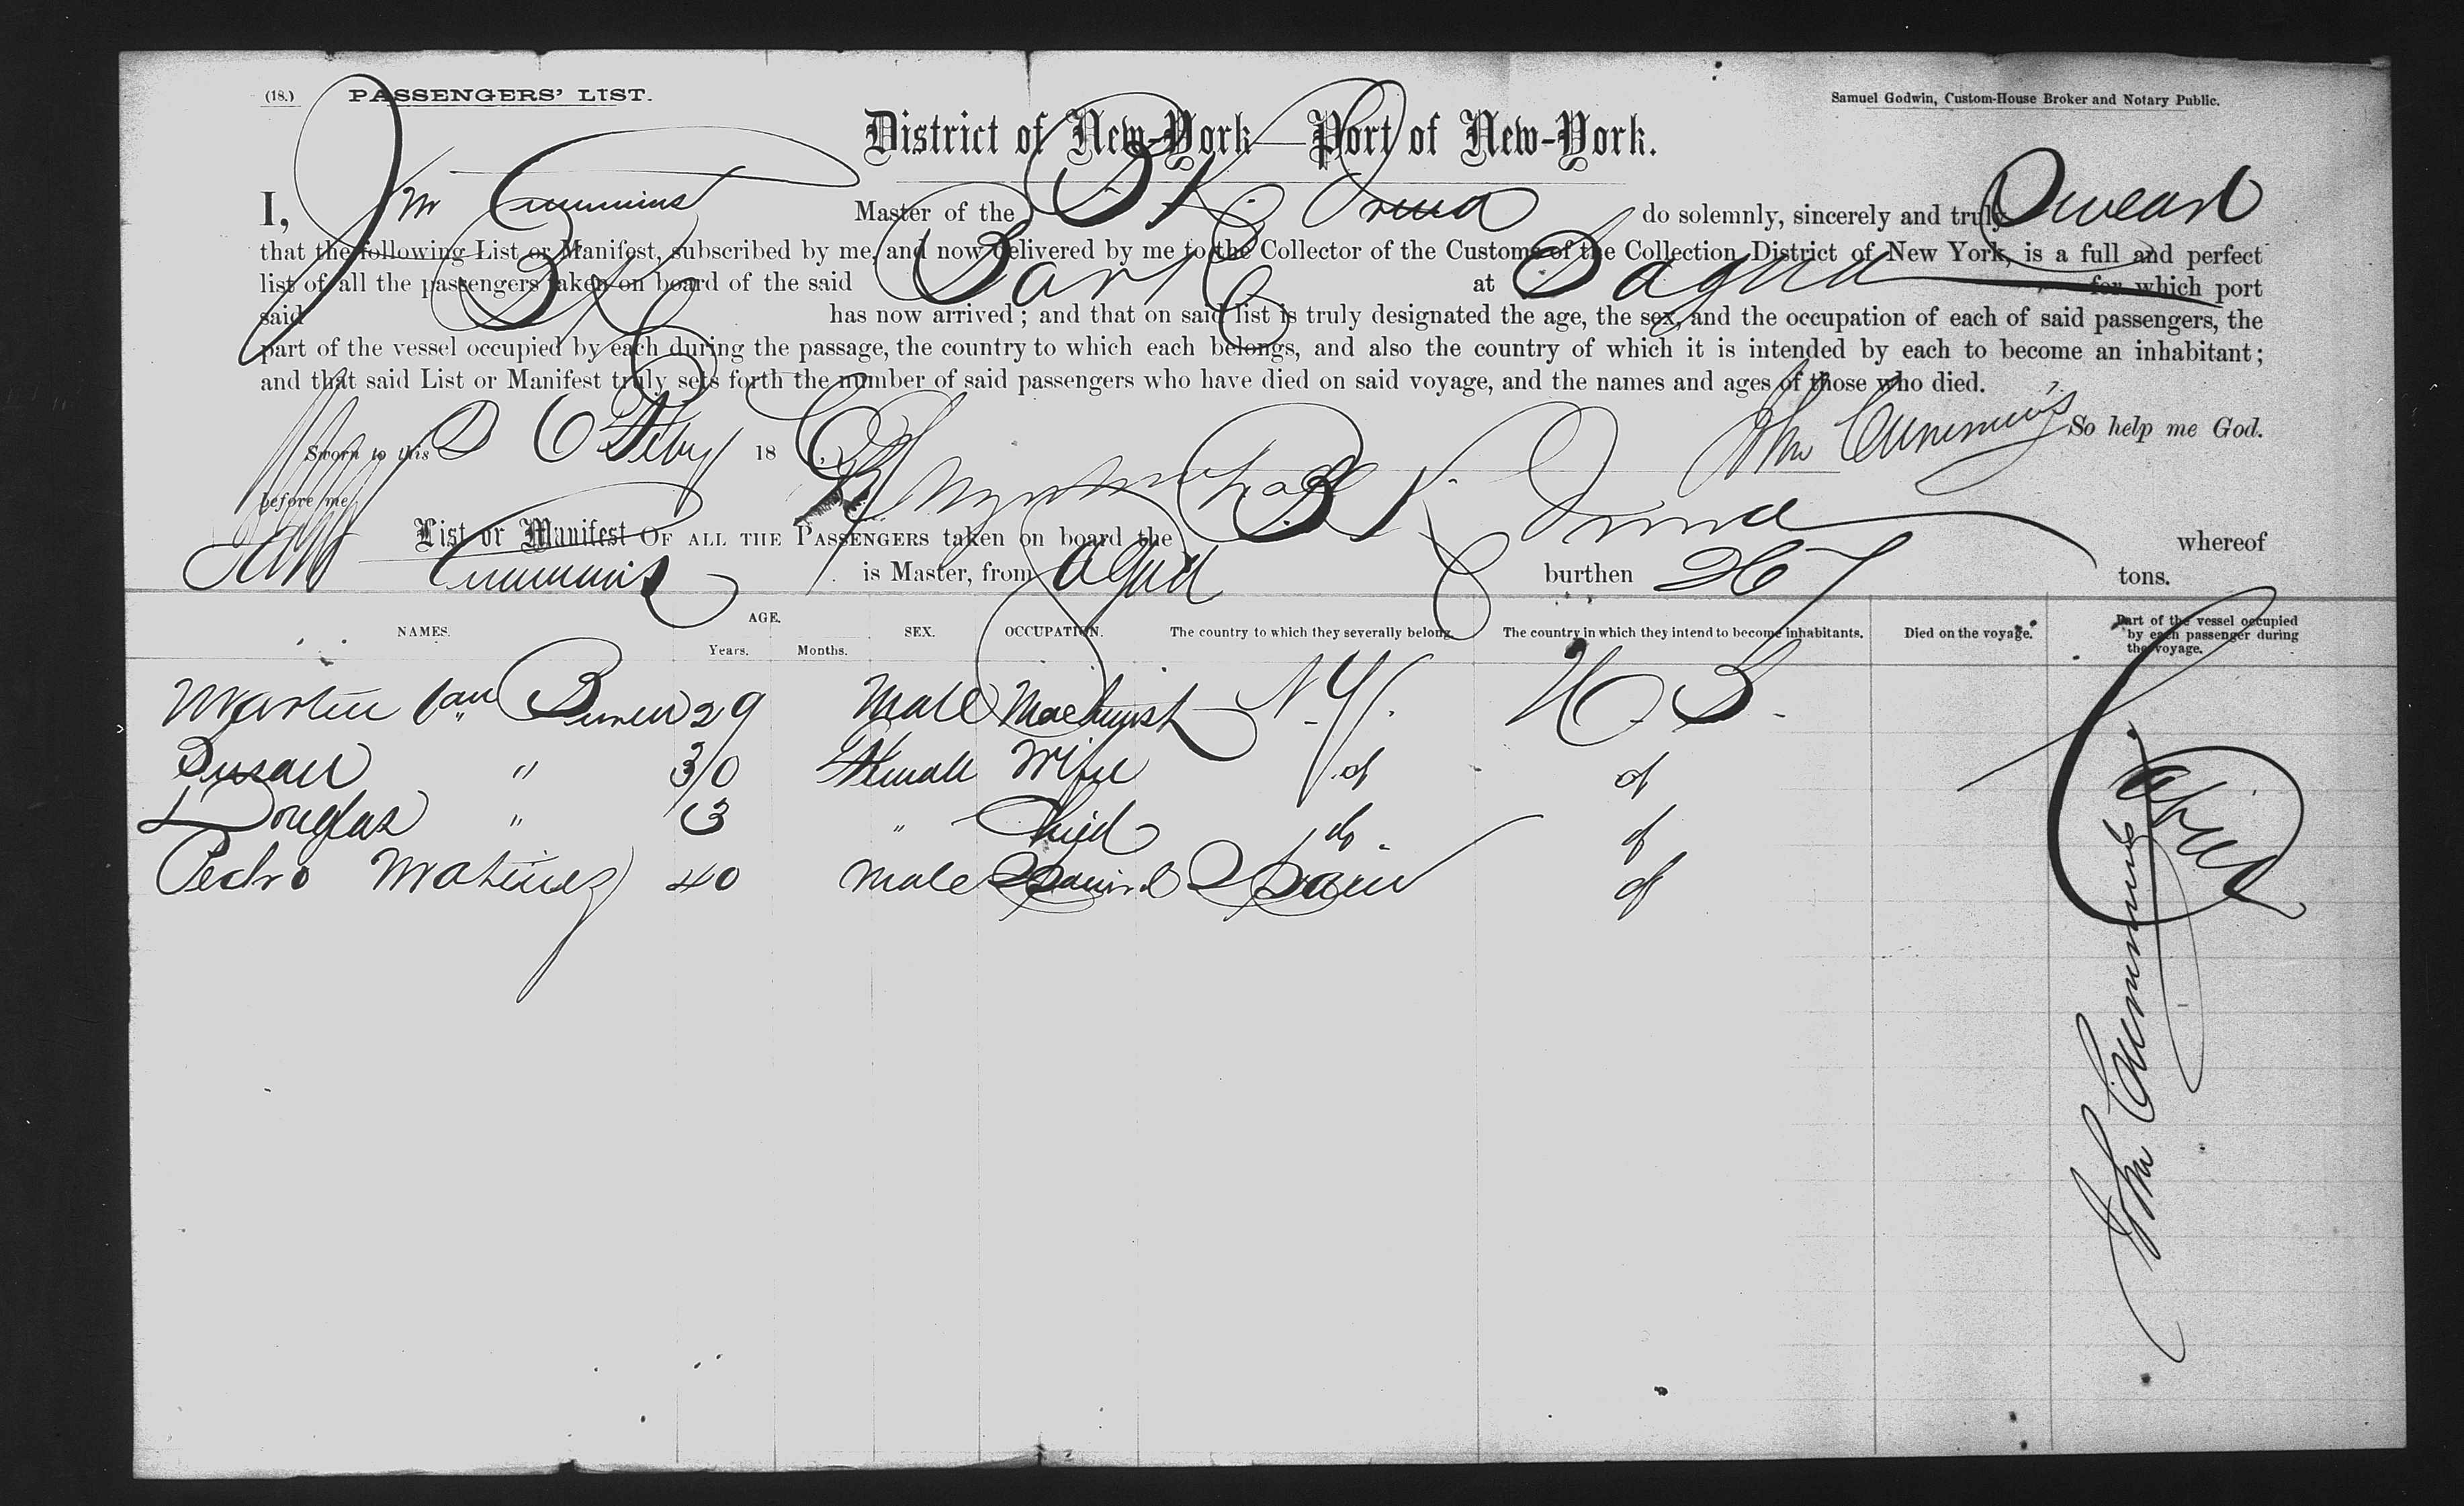 (18.) PASSENGERS' LIST.
Samuel Godwin, Custom-House Broker and Notary Public.
District of New-York—Port of New-York.
I, Jno Cummins Master of the Bk do solemnly, sincerely and truly Swear
that the following List or Manifest, subscribed by me, and now delivered by me to the Collector of the Customs of the Collection District of New York, is a full and perfect
list of all the passengers taken on board of the said Bark at Sagua for which port
said Bk has now arrived; and that on said list is truly designated the age, the sex, and the occupation of each of said passengers, the
part of the vessel occupied by each during the passage, the country to which each belongs, and also the country of which it is intended by each to become an inhabitant;
and that said List or Manifest truly sets forth the number of said passengers who have died on said voyage, and the names and ages of those who died.
Sworn to this 6 Feby 18 Jno Cummins So help me God.
before me,
List or Manifest OF ALL THE PASSENGERS taken on board the Bk whereof
Jno Cummins is Master, from Sagua burthen 267 tons.
NAMES. AGE. Years. Months. SEX. OCCUPATION. The country to which they severally belong. The country in which they intend to become inhabitants. Died on the voyage. Part of the vessel occupied by each passenger during the voyage.
Martin Van Buren 29 Male Machinist N.Y. U.S.
Susan " 30 Female Wife do do
Douglas " 3 " Child do do
Pedro Matinez 40 Male Spain do
Cabin
Jno Cummins